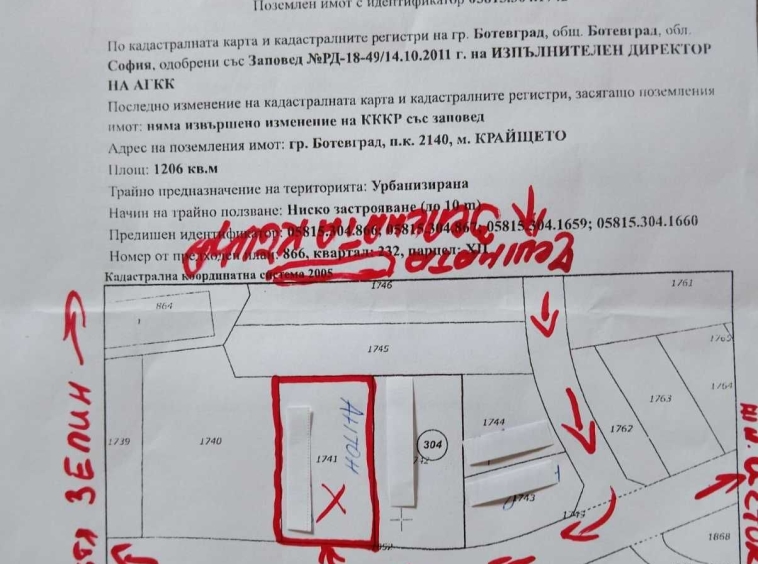 Поземлен имот с идентификатор 05815.304.1742
По кадастралната карта и кадастралните регистри на гр. Ботевград, общ. Ботевград, обл.
София, одобрени със Заповед №РД-18-49/14.10.2011 г. на ИЗПЪЛНИТЕЛЕН ДИРЕКТОР
НА АГКК
Последно изменение на кадастралната карта и кадастралните регистри, засягащо поземления
имот: няма извършено изменение на КККР със заповед
Адрес на поземления имот: гр. Ботевград, п.к. 2140, м. КРАЙЩЕТО
Площ: 1206 кв.м
Трайно предназначение на територията: Урбанизирана
Начин на трайно ползване: Ниско застрояване (до 10 m)
Предишен идентификатор: 05815.304.866; 05815.304.867; 05815.304.1659; 05815.304.1660
Номер от предходен план: 866, квартал: 232, парцел: XII
Кадастрална координатна система 2005
1746
1761
864
1
1745
1765
1764
1763
1744
1762
1739
1740
1741
АНТОН
304
1743
1868
ЗЕЛИН